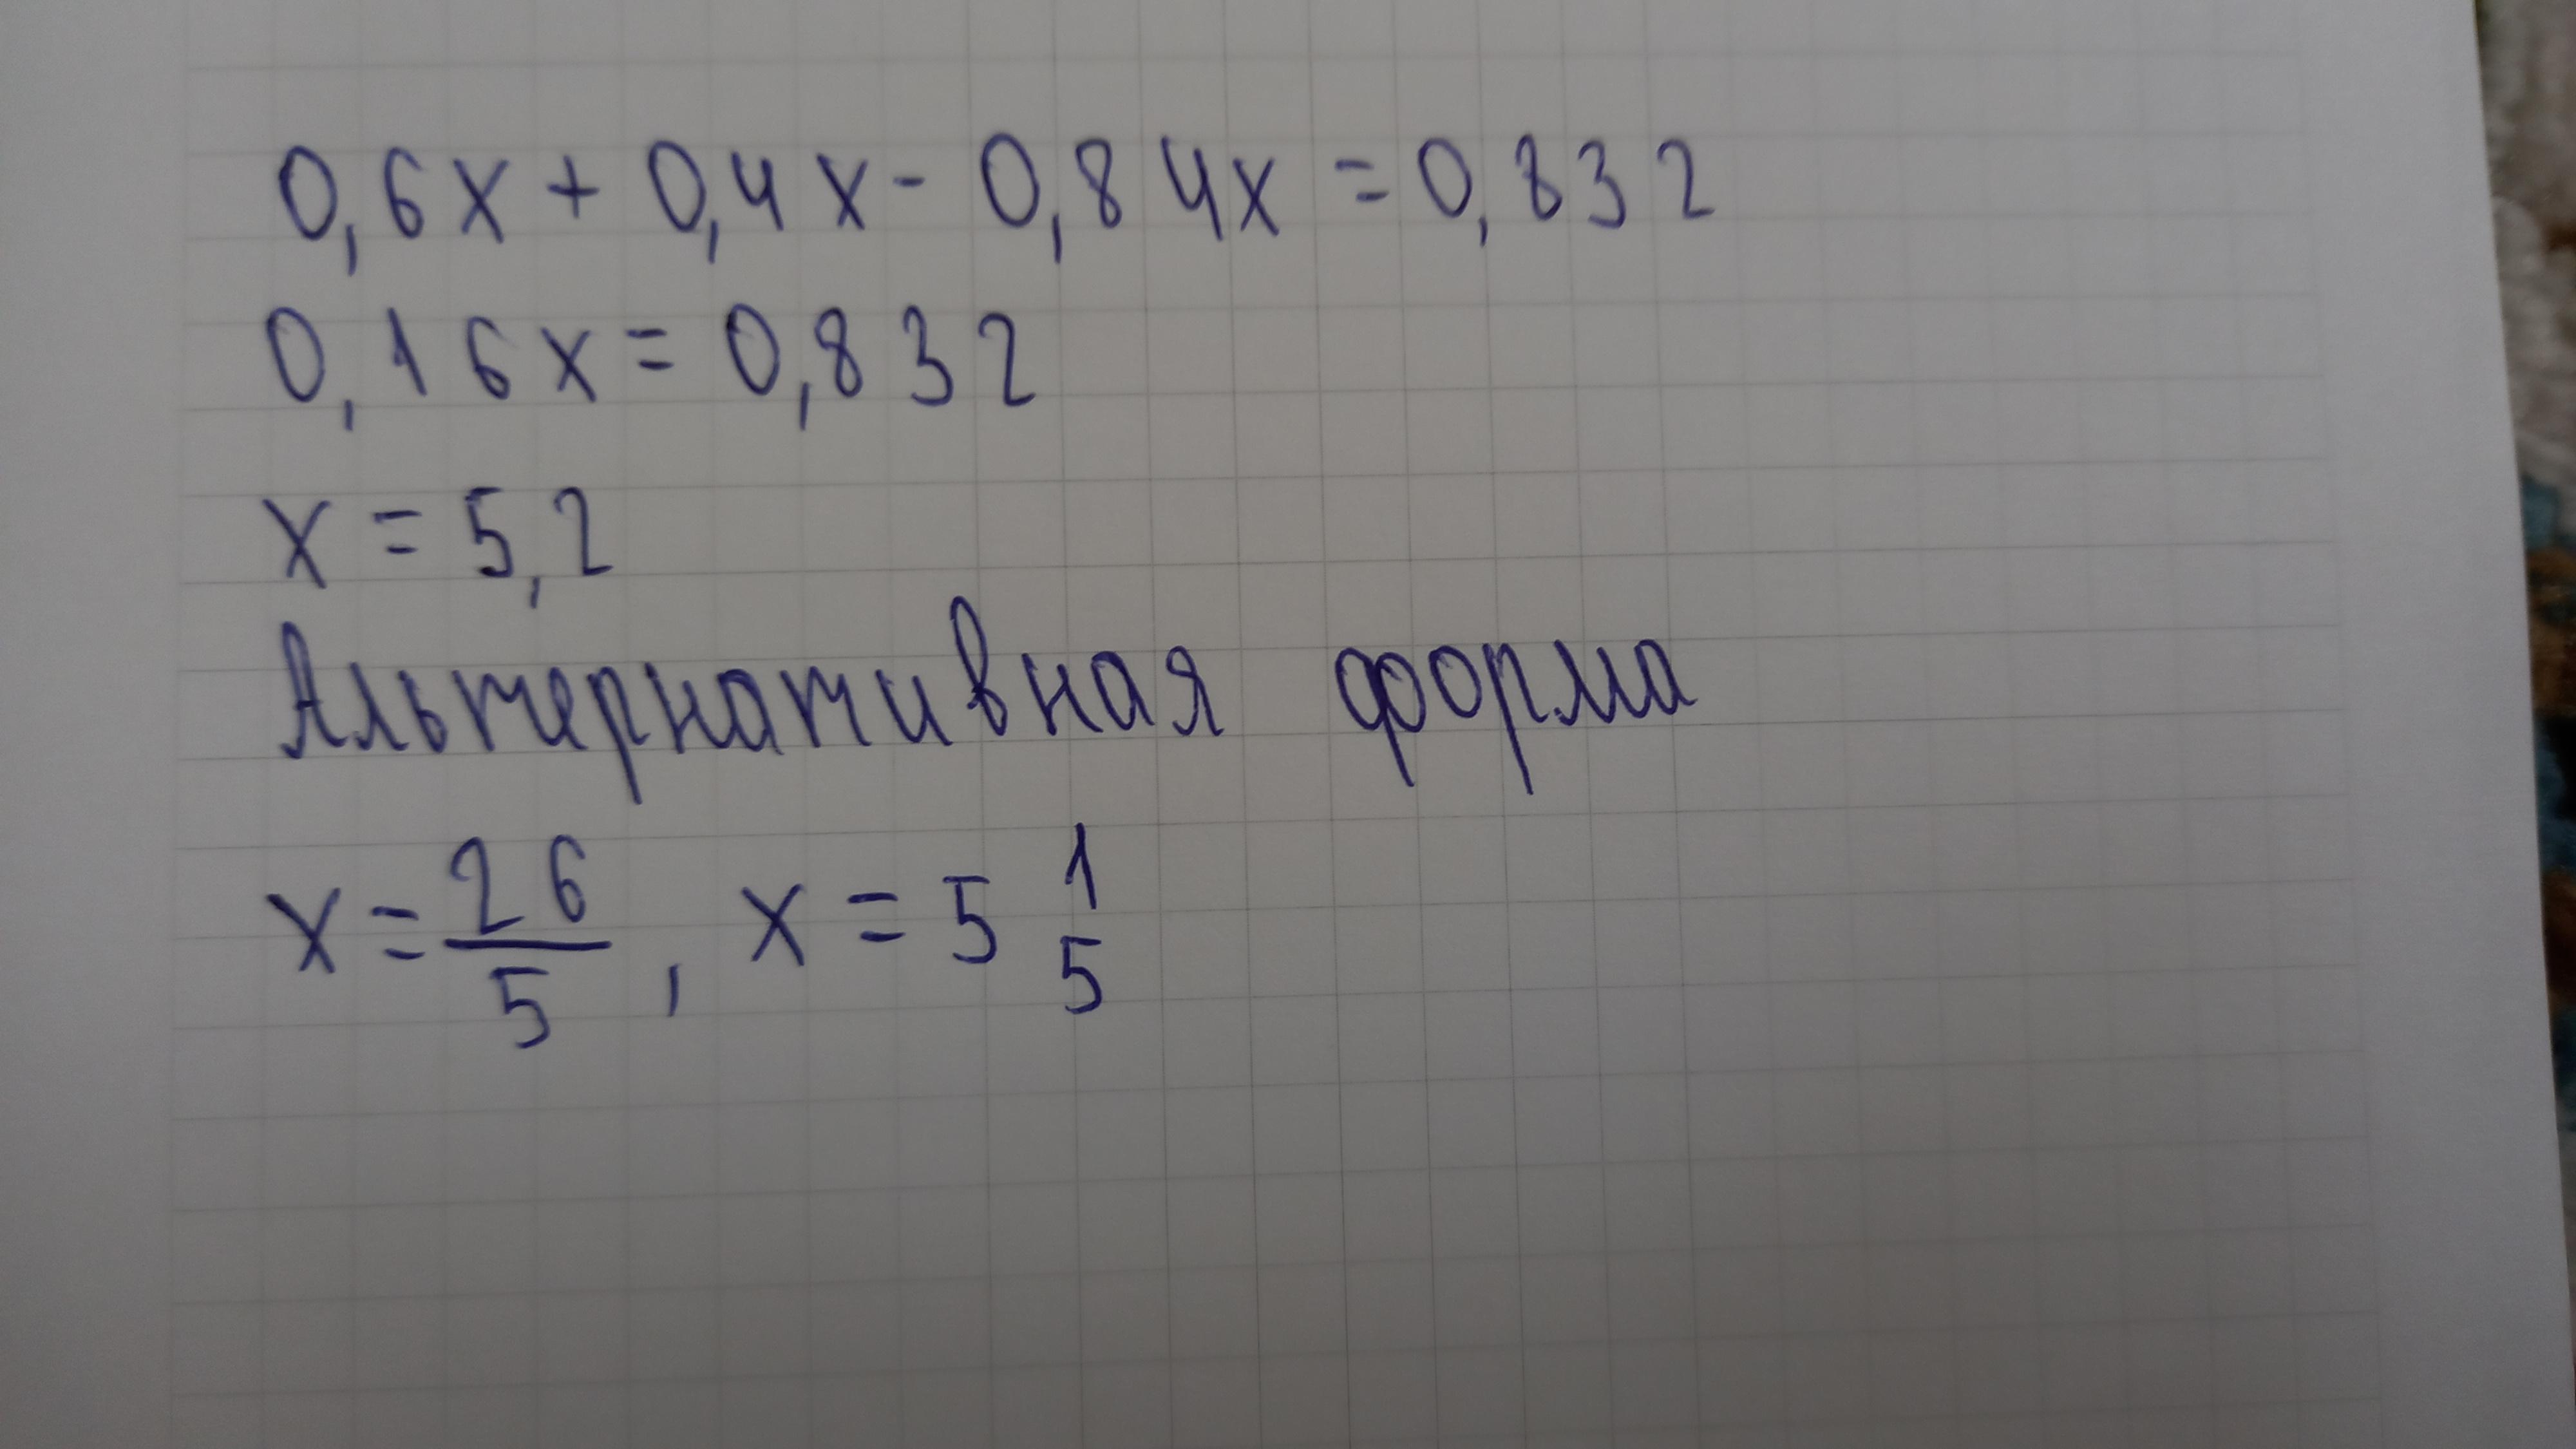 0,6x + 0,4x - 0,84x = 0,832
0,16x = 0,832
x = 5,2
Альтернативная форма
x = 26/5, x = 5 1/5